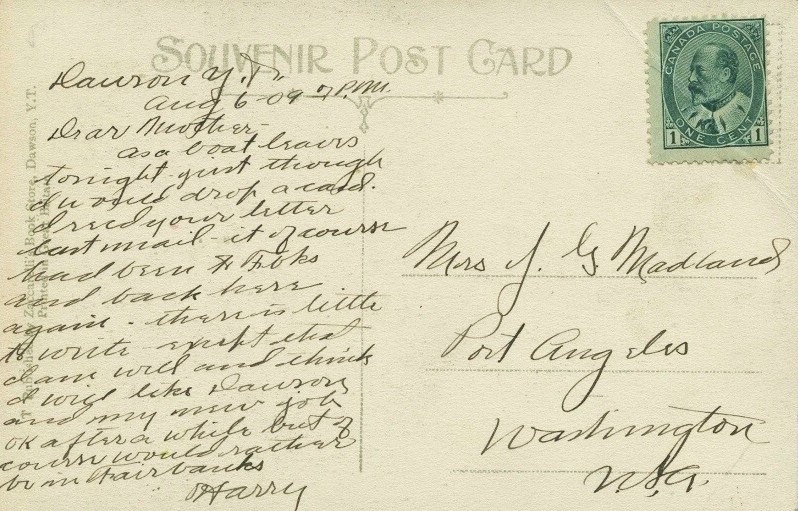 SOUVENIR POST CARD
Dawson Y.T.
Aug 6-09 7 P.M.
Dear Mother-
as a boat leaves
tonight just though
I would drop a card.
I recd your letter
last mail - it of course
had been to Fbks
and back here
again - there is little
to write except that
I am well and think
I will like Dawson
and my new job
ok after a while but of
course would rather
be in Fairbanks
Harry
CANADA POSTAGE
1 ONE CENT 1
Mrs J. G. Madland
Port Angeles
Washington
U.S.A.
Book Store, Dawson, Y.T.
Printed in Great Britain